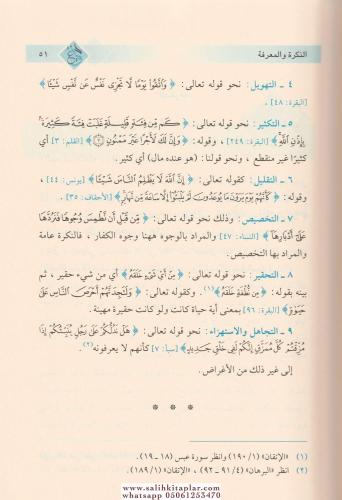 النكرة والمعرفة
٥١
٤ ـ التهويل: نحو قوله تعالى: ﴿وَاتَّقُوا يَوْمًا لَّا تَجْزِي نَفْسٌ عَن نَّفْسٍ شَيْئًا﴾
[البقرة: ٤٨].
٥ ـ التكثير: نحو قوله تعالى: ﴿كَم مِّن فِئَةٍ قَلِيلَةٍ غَلَبَتْ فِئَةً كَثِيرَةً
بِإِذْنِ اللَّهِ﴾ [البقرة: ٢٤٩]، وقوله: ﴿وَإِنَّ لَكَ لَأَجْرًا غَيْرَ مَمْنُونٍ﴾ [القلم: ٣] أي
كثيرًا غير منقطع، ونحو قولنا: (هو عنده مال) أي كثير.
٦ ـ التقليل: كقوله تعالى: ﴿إِنَّ اللَّهَ لَا يَظْلِمُ النَّاسَ شَيْئًا﴾ [يونس: ٤٤]،
وقوله: ﴿كَأَنَّهُمْ يَوْمَ يَرَوْنَ مَا يُوعَدُونَ لَمْ يَلْبَثُوا إِلَّا سَاعَةً مِّن نَّهَارٍ﴾ [الأحقاف: ٣٥].
٧ ـ التخصيص: وذلك نحو قوله تعالى: ﴿مِّن قَبْلِ أَن نَّطْمِسَ وُجُوهًا فَنَرُدَّهَا
عَلَىٰ أَدْبَارِهَا﴾ [النساء: ٤٧] والمراد بالوجوه ههنا وجوه الكفار، فالنكرة عامة
والمراد بها التخصيص.
٨ ـ التحقير: نحو قوله تعالى: ﴿مِنْ أَيِّ شَيْءٍ خَلَقَهُ﴾ أي من شيء حقير، ثم
بينه بقوله: ﴿مِن نُّطْفَةٍ خَلَقَهُ﴾(١). وكقوله تعالى: ﴿وَلَتَجِدَنَّهُمْ أَحْرَصَ النَّاسِ عَلَىٰ
حَيَوٰةٍ﴾ [البقرة: ٩٦] بمعنى أية حياة كانت ولو كانت حقيرة مهينة.
٩ ـ التجاهل والاستهزاء: نحو قوله تعالى: ﴿هَلْ نَدُلُّكُمْ عَلَىٰ رَجُلٍ يُنَبِّئُكُمْ إِذَا
مُزِّقْتُمْ كُلَّ مُمَزَّقٍ إِنَّكُمْ لَفِي خَلْقٍ جَدِيدٍ﴾ [سبأ: ٧] كأنهم لا يعرفونه(٢).
إلى غير ذلك من الأغراض.
* * *
(١) «الإتقان» (١/ ١٩٠) وانظر سورة عبس (١٨ ـ ١٩).
(٢) انظر «البرهان» (٤/ ٩١ ـ ٩٢)، «الإتقان» (١/ ١٨٩).
www.salihkitaplar.com
whatsapp 05061253470